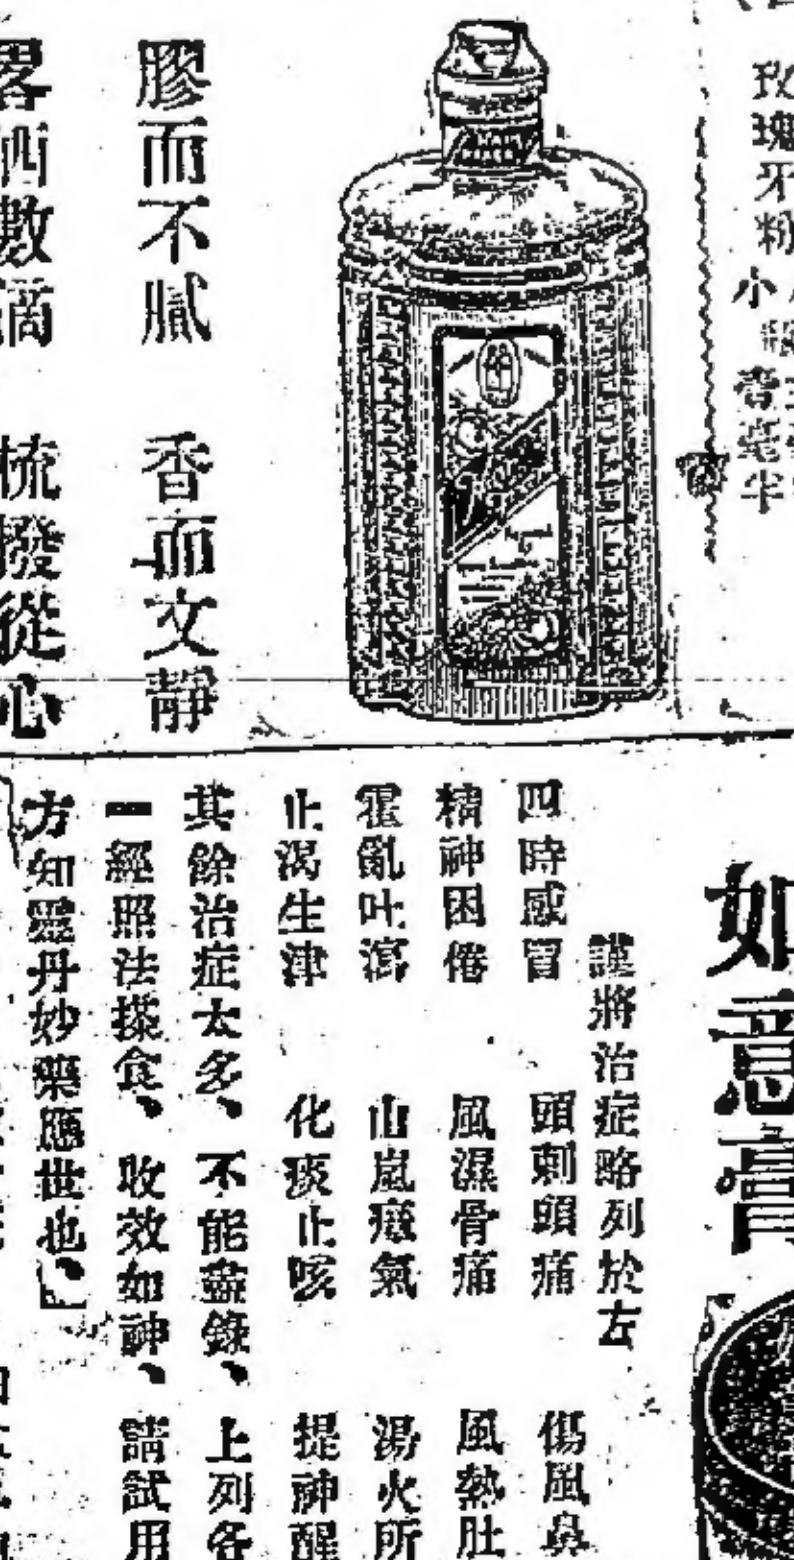 玫瑰牙粉
小
膠而不膩　香而文靜
畧洒數滴　梳撥從心
如意膏
謹將治症略列於左
四時感冒　頭刺頭痛　傷風鼻
精神困倦　風濕骨痛　風熱肚
霍亂吐瀉　山嵐瘴氣　湯火所
止渴生津　化痰止咳　提神醒
其餘治症太多、不能盡錄、上列各
一經照法搽食、收效如神、請試用
方知靈丹妙藥應世也、」